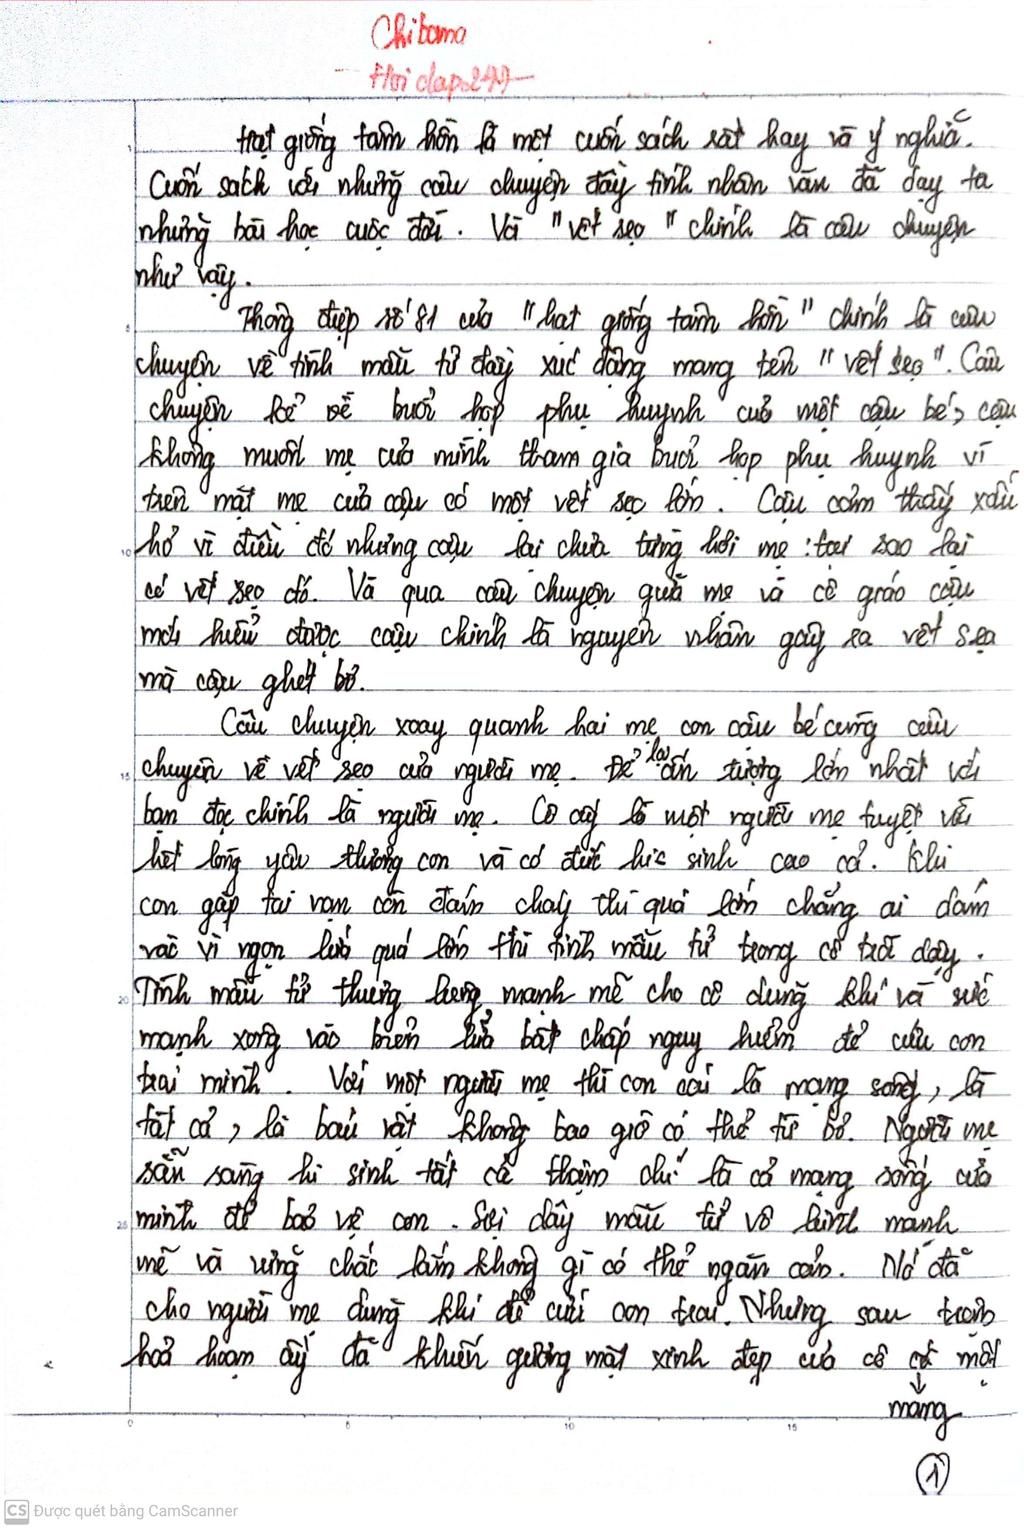 Chibama
Hoidap247
Hạt giống tâm hồn là một cuốn sách rất hay và ý nghĩa.
Cuốn sách với những câu chuyện đầy tính nhân văn đã dạy ta
những bài học cuộc đời. Và "vết sẹo" chính là câu chuyện
như vậy.
Thông điệp số 81 của "hạt giống tâm hồn" chính là câu
chuyện về tình mẫu tử đầy xúc động mang tên "vết sẹo". Câu
chuyện kể về buổi họp phụ huynh của một cậu bé, cậu
không muốn mẹ của mình tham gia buổi họp phụ huynh vì
trên mặt mẹ của cậu có một vết sẹo lớn. Cậu cảm thấy xấu
hổ vì điều đó nhưng cậu lại chưa từng hỏi mẹ : tại sao lại
có vết sẹo đó. Và qua câu chuyện giữa mẹ và cô giáo cậu
mới hiểu được cậu chính là nguyên nhân gây ra vết sẹo
mà cậu ghét bỏ.
Câu chuyện xoay quanh hai mẹ con cậu bé cùng câu
chuyện về vết sẹo của người mẹ. Để lại ấn tượng lớn nhất với
bạn đọc chính là người mẹ. Cô ấy là một người mẹ tuyệt vời
hết lòng yêu thương con và có đức hi sinh cao cả. Khi
con gặp tai nạn còn đám cháy thì quá lớn chẳng ai dám
vào vì ngọn lửa quá lớn thì tình mẫu tử trong cô trỗi dậy.
Tình mẫu tử thiêng liêng mạnh mẽ cho cô dũng khí và sức
mạnh xông vào biển lửa bất chấp nguy hiểm để cứu con
trai mình. Với một người mẹ thì con cái là mạng sống, là
tất cả, là báu vật không bao giờ có thể từ bỏ. Người mẹ
sẵn sàng hi sinh tất cả thậm chí là cả mạng sống của
mình để bảo vệ con. Sợi dây mẫu tử vô hình mạnh
mẽ và vững chắc lắm không gì có thể ngăn cản. Nó đã
cho người mẹ dũng khí để cứu con trai. Nhưng sau trận
hoả hoạn ấy đã khiến gương mặt xinh đẹp của cô có một
mang
1
CS Được quét bằng CamScanner